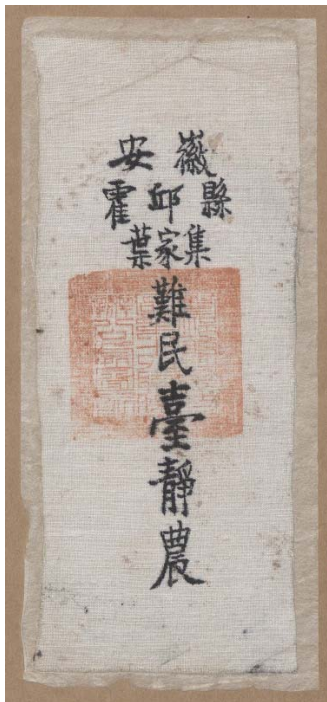 安徽
霍邱縣
葉家集
難民臺靜農